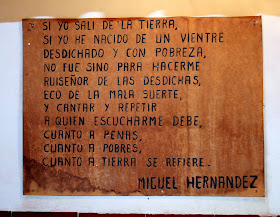 SI YO SALI DE LA TIERRA,
SI YO HE NACIDO DE UN VIENTRE
DESDICHADO Y CON POBREZA,
NO FUE SINO PARA HACERME
RUISEÑOR DE LAS DESDICHAS,
ECO DE LA MALA SUERTE,
Y CANTAR Y REPETIR
A QUIEN ESCUCHARME DEBE,
CUANTO A PENAS,
CUANTO A POBRES,
CUANTO A TIERRA SE REFIERE.
MIGUEL HERNANDEZ